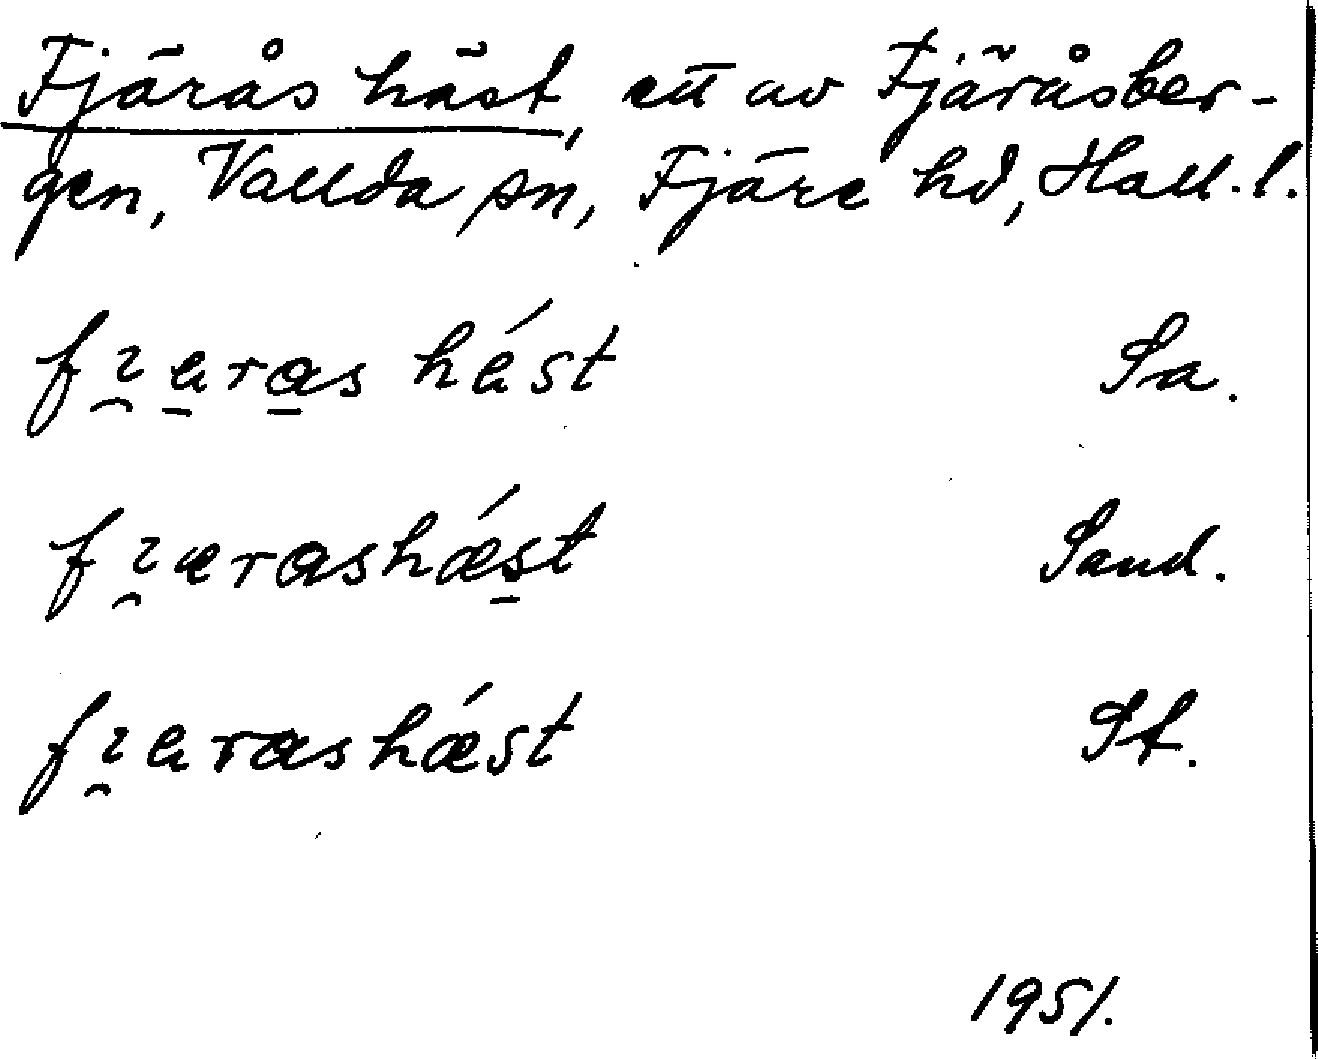 Fjärås häst, ett av Fjäråsber-
gen, Vallda sn, Fjäre hd, Hall. l.
fɿ̯a̱ra̱s hást Sa.
fɿ̯ærashǽs̱t Sand.
fɿ̯arashǽst St.
1951.